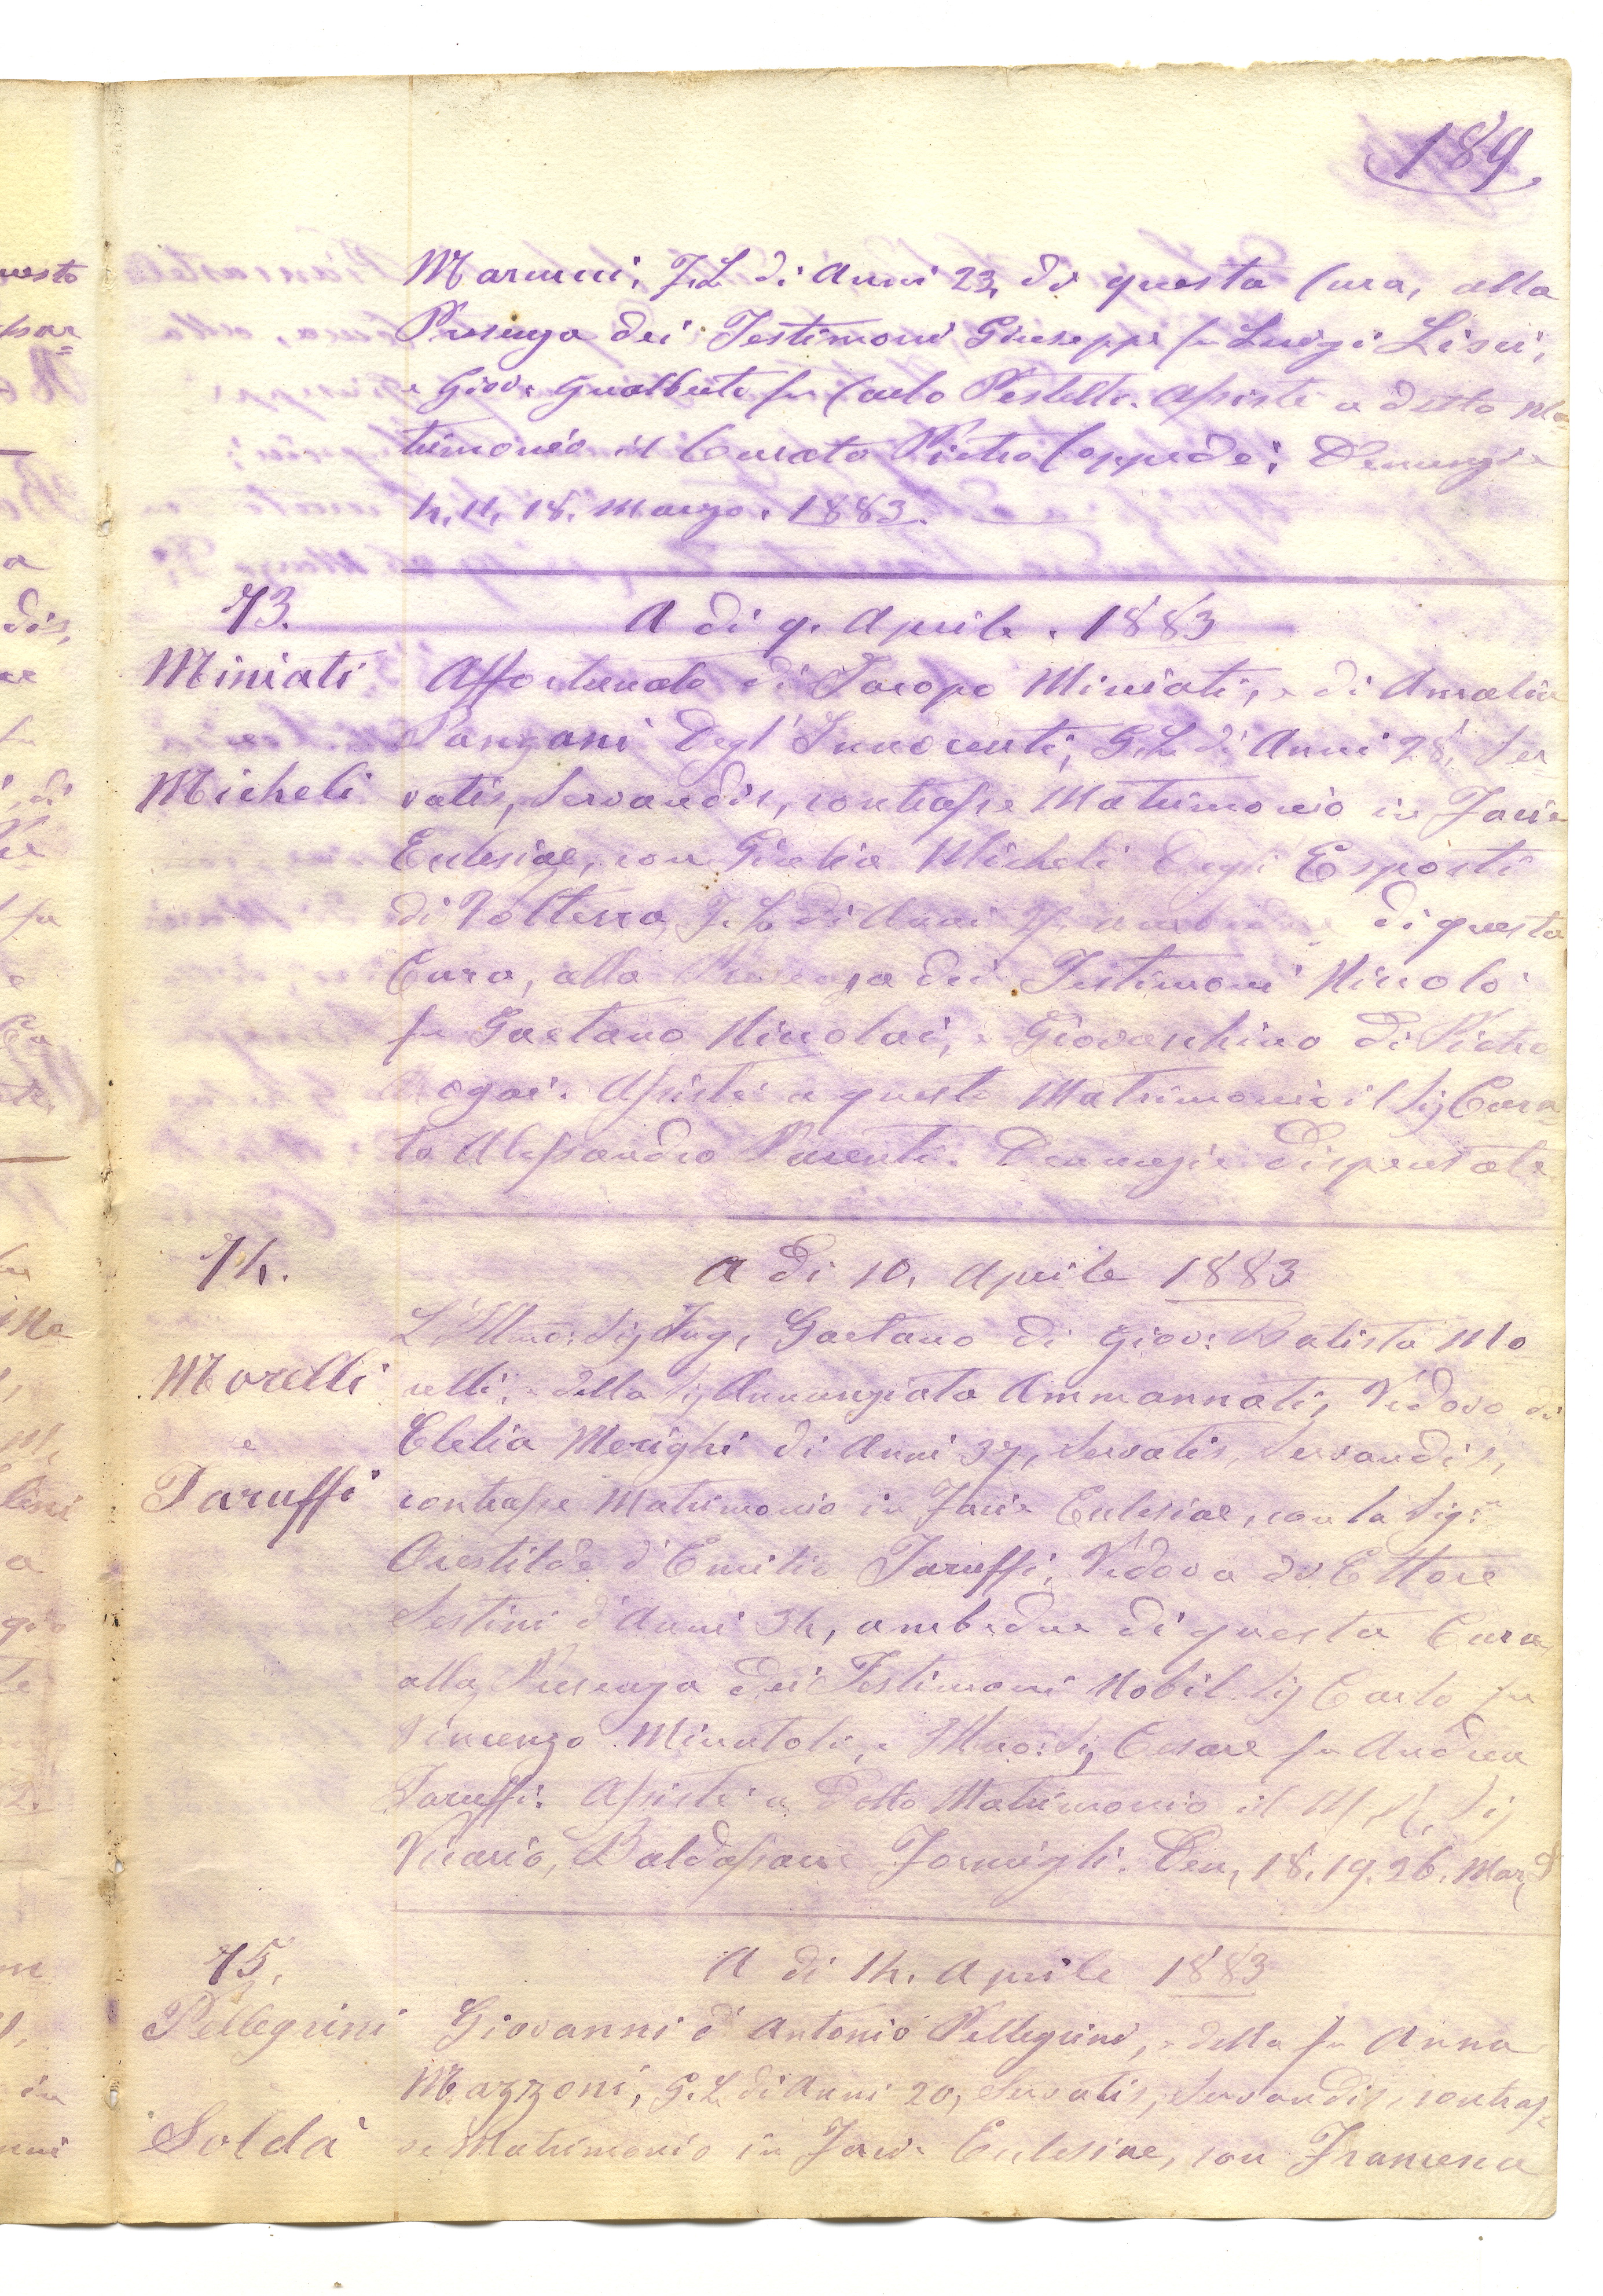 189
Marucci, F.L. di Anni 23, di questa Cura, alla
Presenza dei Testimoni Giuseppe fu Luigi Lisci,
e Giov. Gualberto fu Carlo Pestelli. Assistè a detto Ma=
trimonio il Curato Pietro Coppedei Denunzie
4, 11, 18, Marzo. 1883.
73. A dì 9. Aprile. 1883
Miniati
e
Micheli
Affortunato di Jacopo Miniati, e di Amalia
Panzani Degl'Innocenti, G.L. di Anni 28, Ser
vatis, Servandis, contrasse Matrimonio in Facie
Eclesiae, con Giulia Micheli Degli Esposti
di Volterra, F.L. di Anni di questa
Cura, alla Presenza dei Testimoni Niccolò
fu Gaetano Niccolai, e Giovacchino di Pietro
Assistè a questo Matrimonio il Sig Cura=
to Alessandro Parenti. Denunzie dispensate
74. A dì 10. Aprile 1883
Morelli
e
Taruffi
L'Illmo: Sig Ing, Gaetano di Giov: Batista Mo
relli, e della Sig Annunziata Ammannati, Vedovo di
Clelia Merighi di Anni 37, Servatis, Servandis,
contrasse Matrimonio in Facie Eclesiae, con la Sig:
Orestilde d'Emilio Taruffi, Vedova di Ettore
Sestini d'Anni 34, ambedue di questa Cura
alla Presenza dei Testimoni Nobil. Sig Carlo fu
Vincenzo Minutoli, e Illmo: Sig Cesare fu Andrea
Taruffi. Assistè a detto Matrimonio il M. R. Sig
Vicario, Baldassarre Formigli. Den, 18. 19. 26. Mar,
75. A dì 14. Aprile 1883
Pellegrini
e
Soldà
Giovanni d'Antonio Pellegrini, e della fu Anna
Mazzoni, G.L. di Anni 20, Servatis, Servandis, contras=
se Matrimonio in Facie Eclesiae, con Francesca